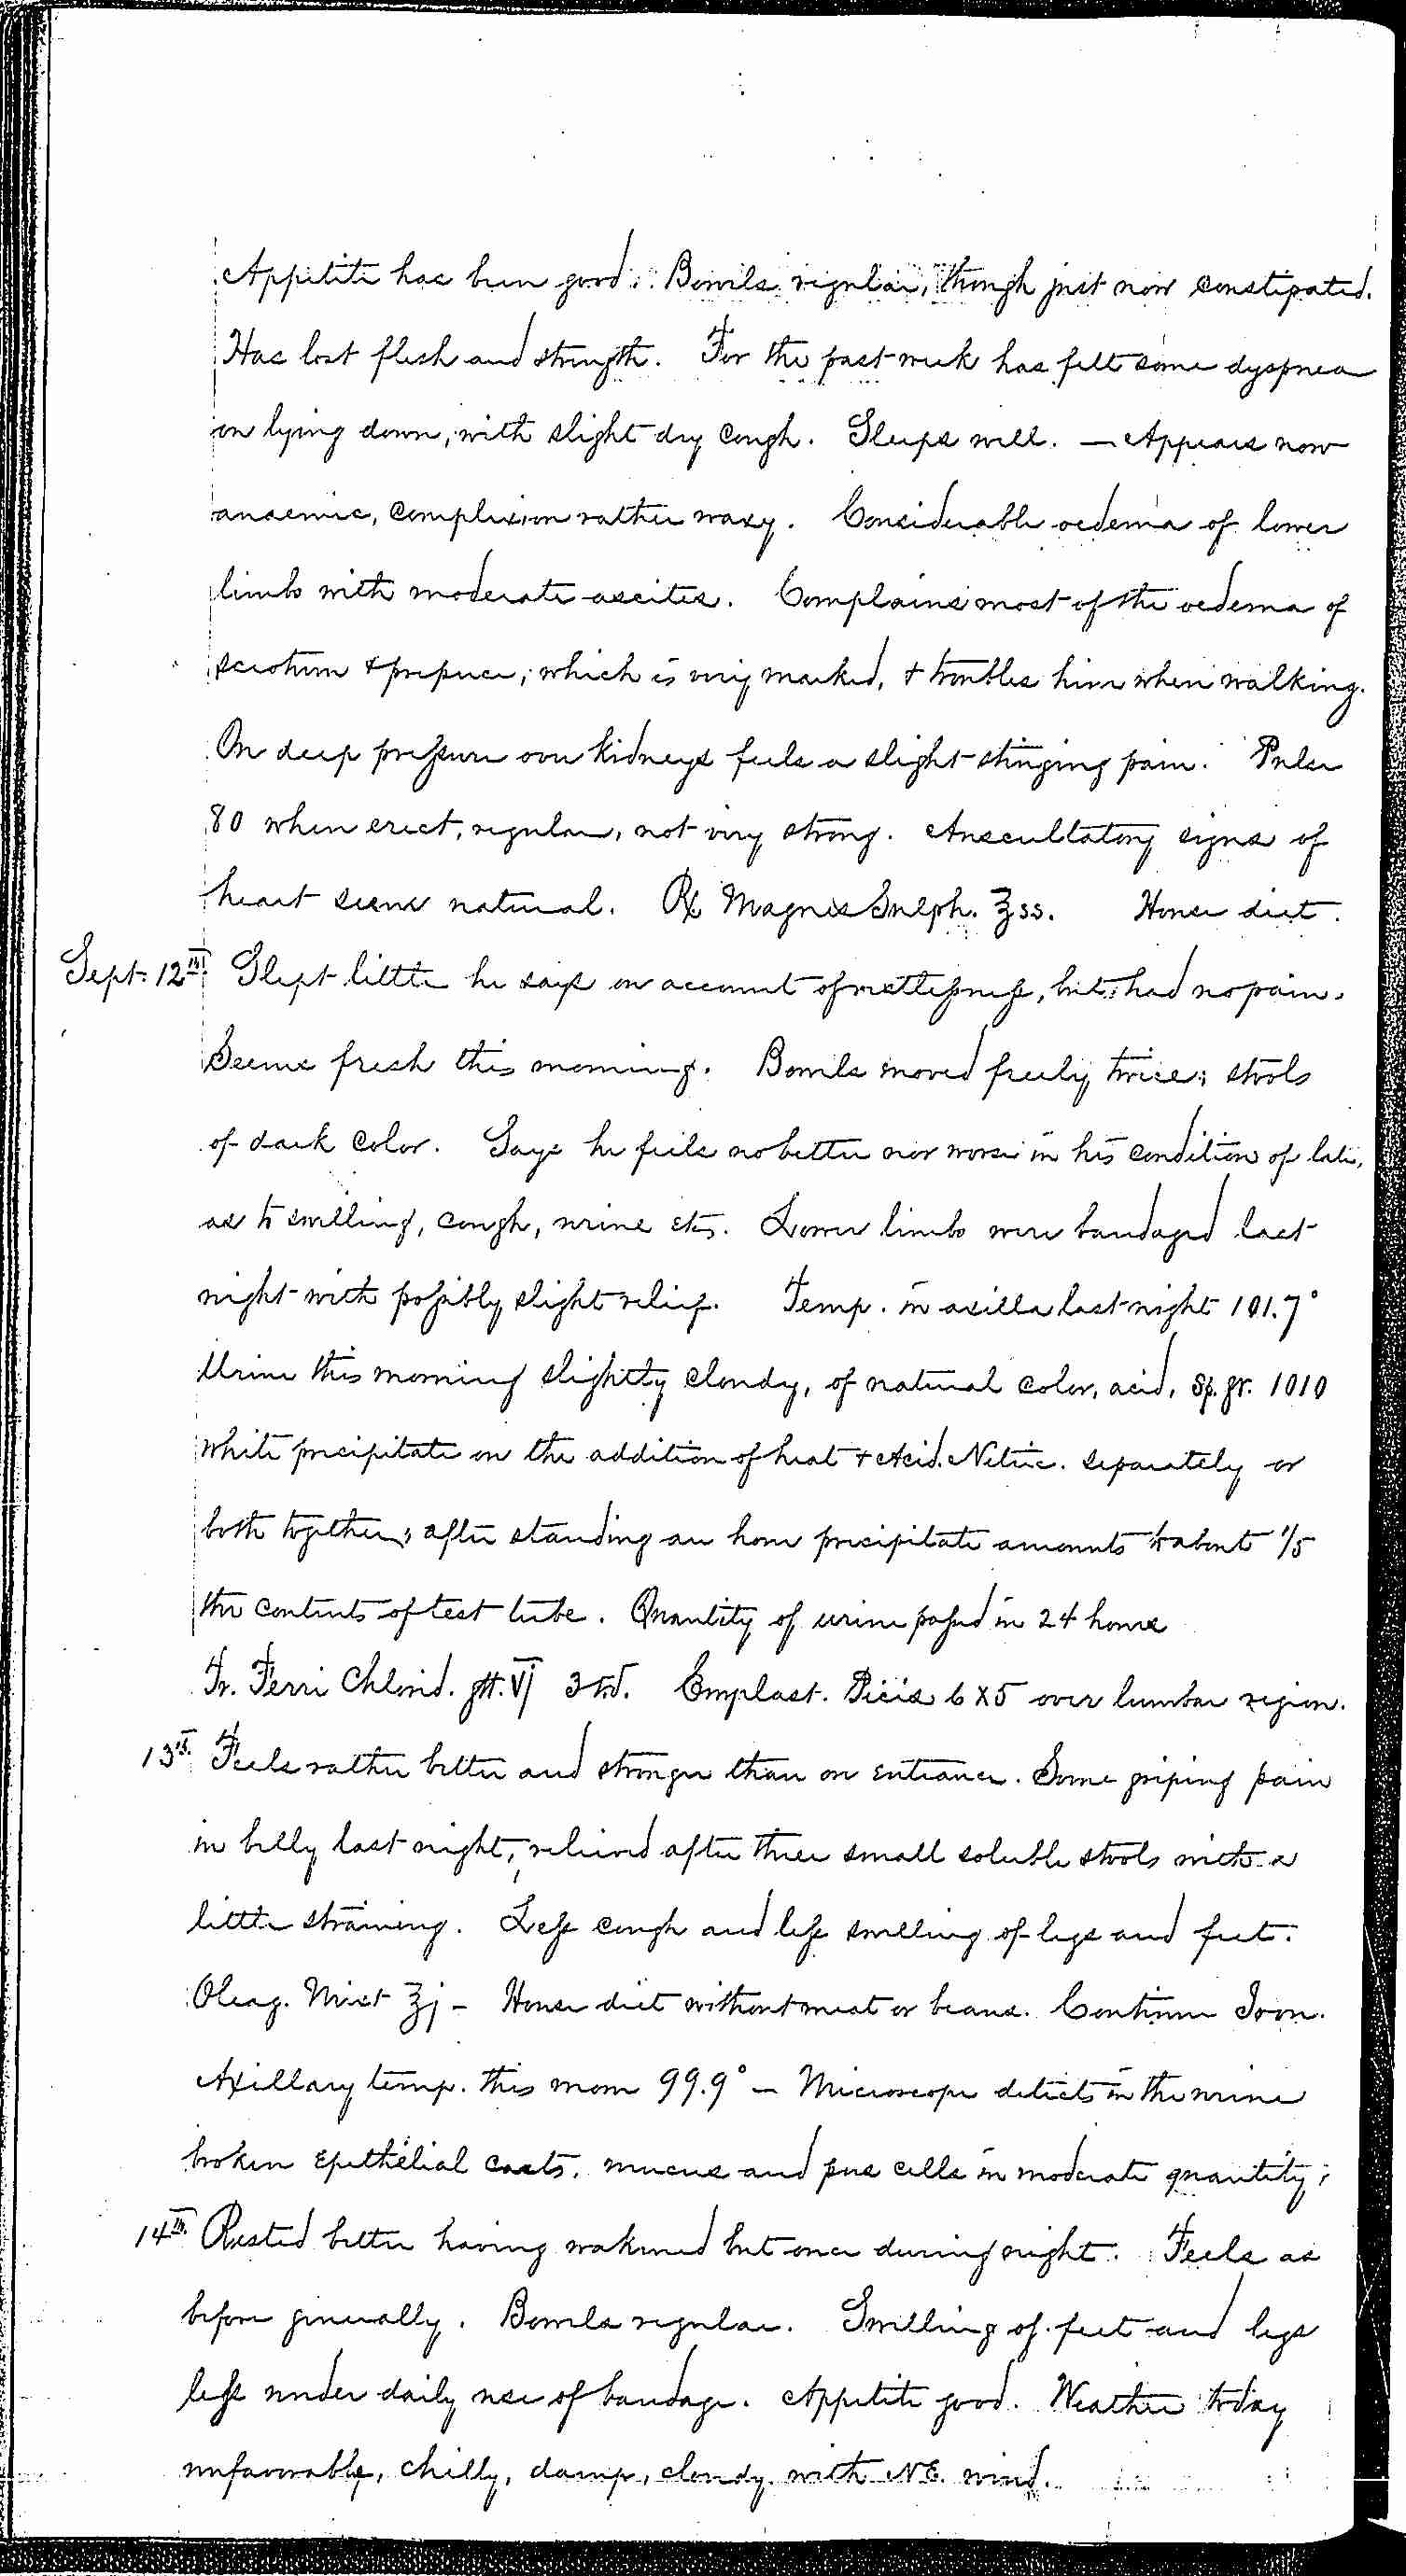 Appetite has been good. Bowels regular, though just now constipated.
Has lost flesh and strength. For the past week has felt some dyspnea
on lying down, with slight dry cough. Sleeps well. — Appears now
anaemic, complexion rather waxy. Considerable oedema of lower
limbs with moderate ascites. Complains most of the oedema of
scrotum & prepuce, which is very marked, & troubles him when walking.
On deep pressure over kidneys feels a slight stinging pain. Pulse
80 when erect, regular, not very strong. Auscultatory signs of
heart seem natural. ℞ Magnes Sulph. ℥ss. House diet.
Sept. 12th. Slept little he says on account of restlessness, but had no pain.
Seems fresh this morning. Bowels moved freely twice; stools
of dark color. Says he feels no better nor worse in his condition of late,
as to swelling, cough, urine etc. Lower limbs were bandaged last
night with possibly slight relief. Temp. in axilla last night 101.7°
Urine this morning slightly cloudy, of natural color, acid, sp. gr. 1010
white precipitate on the addition of heat & Acid. Nitric. separately or
both together; after standing an hour precipitate amounts to about 1/5
the contents of test tube. Quantity of urine passed in 24 hours
Tr. Ferri Chlorid. gtt. vj 3 t.d. Emplast. Picis 6 x 5 over lumbar region.
13th. Feels rather better and stronger than on entrance. Some griping pain
in belly last night, relieved after three small soluble stools with a
little straining. Less cough and less swelling of legs and feet.
Oleag. Mixt ℥j — House diet without meat or beans. Continue Iron.
Axillary temp. this morn 99.9° — Microscope detects in the urine
broken epithelial casts, mucus and pus cells in moderate quantity;
14th. Rested better having wakened but once during night. Feels as
before generally. Bowels regular. Swelling of feet and legs
less under daily use of bandage. Appetite good. Weather today
unfavorable, chilly, damp, cloudy, with N.E. wind.